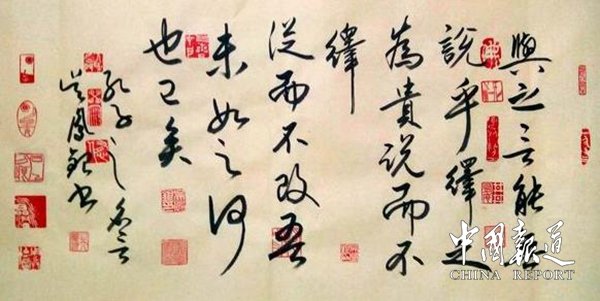 與之言能無
說乎繹之
為貴說而不
繹
從而不改吾
未如之何
也已矣
孔子之名言
鳳 书
中國報道
CHINA REPORT